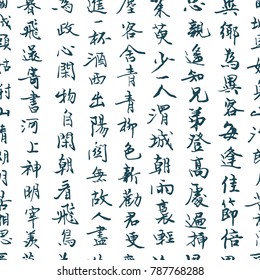 鄉為異客每逢佳節倍
思親遙知兄弟登高處遍插
萸少一人渭城朝雨裛輕
客舍青青柳色新勸君更
進一杯酒西出陽關無故人盡
心閑物自閑朝看飛鳥
飛還寄書河上神明宰羨
頭姑射山